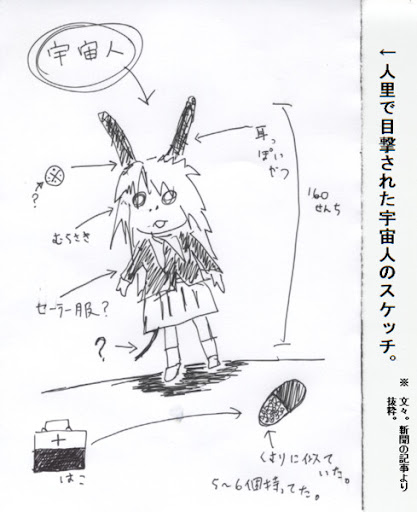 ←人里で目撃された宇宙人のスケッチ。
※ 文々。新聞の記事より
抜粋。
宇宙人
耳っ
ぽい
やつ
160
せんち
?
むらさき
セーラー服?
?
はこ
くすりに似て
いた。
5〜6個持ってた。